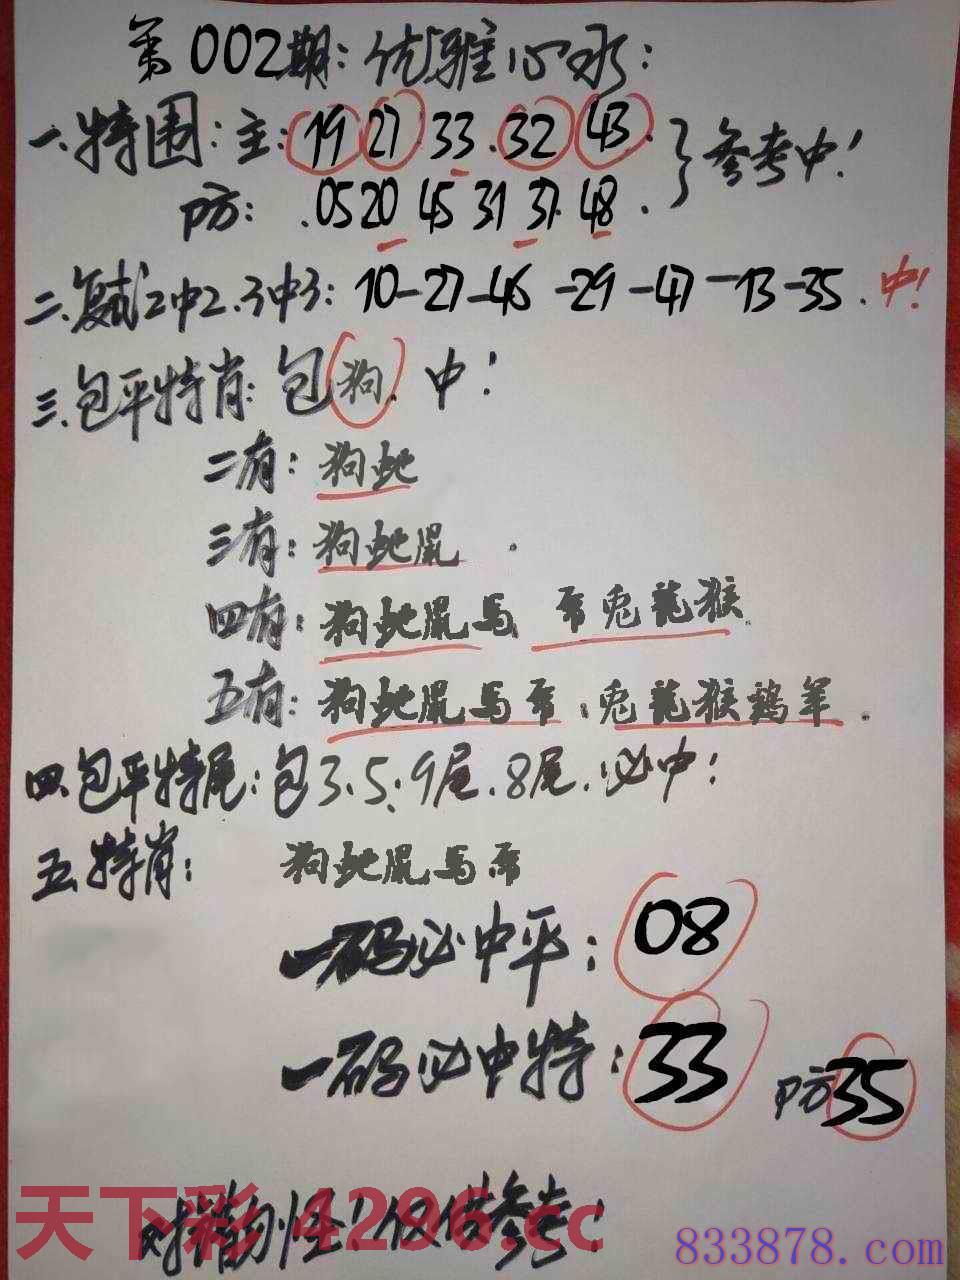 第002期:优雅心水:
一.特围:主:19 27 33.32 43.}参考中!
防:.0520 45 31 37.48.
二.复试2中2.3中3:10-27-46-29-47-13-35.中!
三.包平特肖:包狗.中!
二有:狗蛇
三有:狗蛇鼠.
四有:狗蛇鼠马 兔龙猴.
五有:狗蛇鼠马 兔龙猴鸡羊.
四.包平特尾:包3.5.9尾.8尾.必中!
五.特肖:狗蛇鼠马
一码必中平:08
一码必中特:33 防35
天下彩 4296.cc
仅供参考!
833878.com